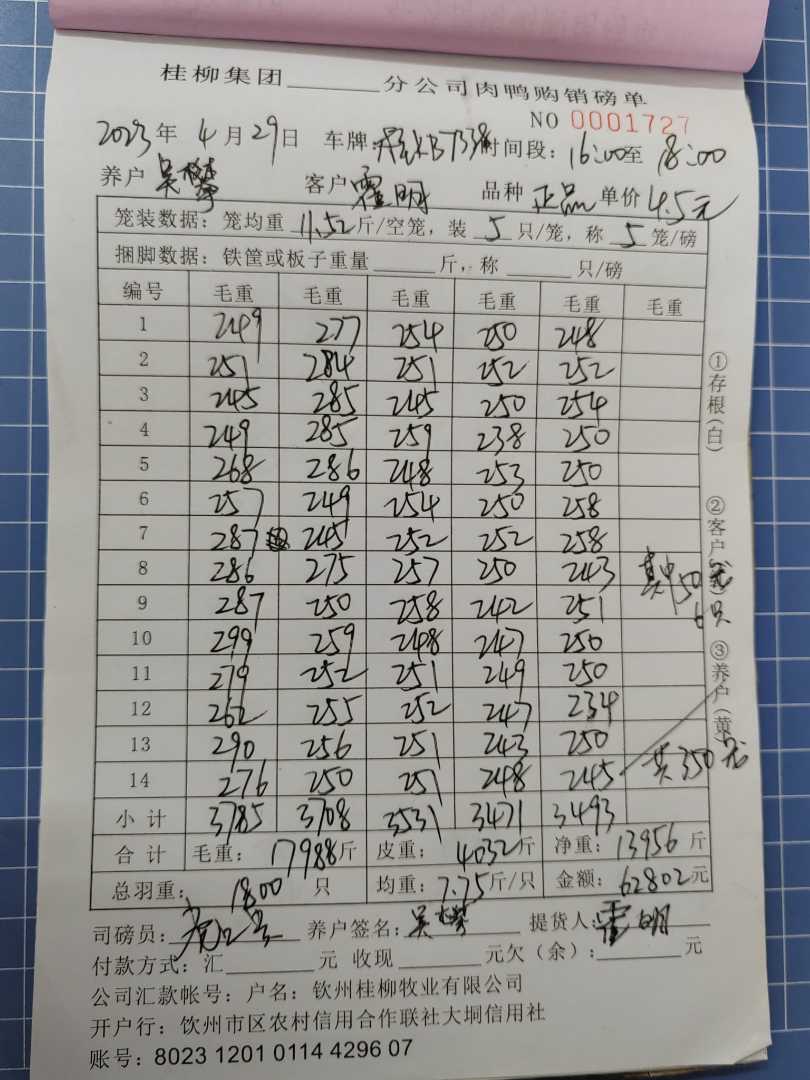 桂柳集团______分公司肉鸭购销磅单
NO 0001727
2023年 4月29日 车牌: 7738 时间段: 16:00至 18:00
养户 吴攀 客户 霍明 品种 正品 单价 4.5元
笼装数据: 笼均重 11.52斤/空笼, 装 5 只/笼, 称 5 笼/磅
捆脚数据: 铁筐或板子重量______斤, 称______只/磅
编号 毛重 毛重 毛重 毛重 毛重 毛重
1 249 277 254 250 248
2 251 284 251 252 252
3 245 285 245 250 254
4 249 285 259 238 250
5 268 286 248 253 250
6 257 249 254 250 258
7 287 245 252 252 258
8 286 275 257 250 243 其中50
9 287 250 258 242 251 6只
10 299 259 248 247 250
11 279 252 251 249 250
12 262 255 252 247 234
13 290 256 251 243 250
14 276 250 251 248 245 共350元
小计 3785 3708 3531 3471 3493
合计 毛重: 17988斤 皮重: 4032斤 净重: 13956斤
总羽重: 1800 只 均重: 7.75斤/只 金额: 62802元
司磅员: 养户签名: 吴攀 提货人: 霍明
付款方式: 汇______元 收现______元欠(余):______元
公司汇款帐号: 户名: 钦州桂柳牧业有限公司
开户行: 钦州市区农村信用合作联社大垌信用社
账号: 8023 1201 0114 4296 07
①存根(白) ②客户 ③养户(黄)